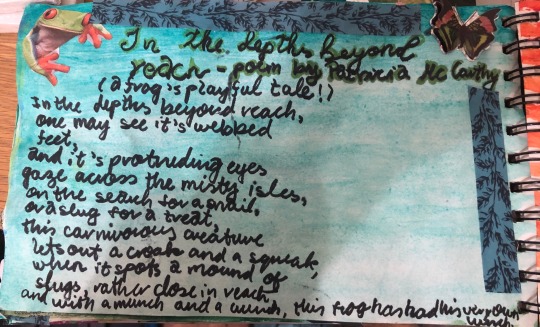 In the depths beyond
reach - poem by Patricia Mc Carthy
(a frog is playful tale!)
In the depths beyond reach,
one may see it's webbed
feet,
and it's protruding eyes
gaze across the misty isles,
on the search for a snail,
or a slug for a treat,
this carnivorous creature
lets out a croak and a squeak,
when it spots a mound of
slugs, rather close in reach
and with a munch and a crunch, this frog has had his very own
lunch.